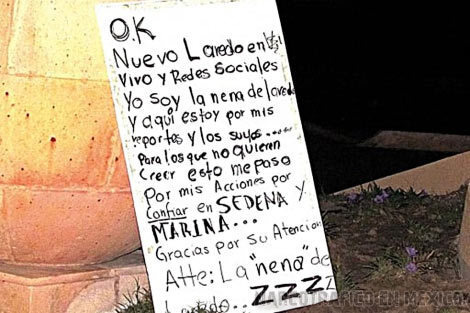 O.K
Nuevo Laredo en
Vivo y Redes Sociales
Yo Soy la nena de laredo
y aqui estoy por mis
reportes y los suyos.....
Para los que no quieren
Creer esto me paso
Por mis Acciones por
Confiar en SEDENA y
MARINA...
Gracias por Su Atencion
Atte: La "nena" de
Laredo... ZZZZ
NARCOTRAFICO EN MEXICO